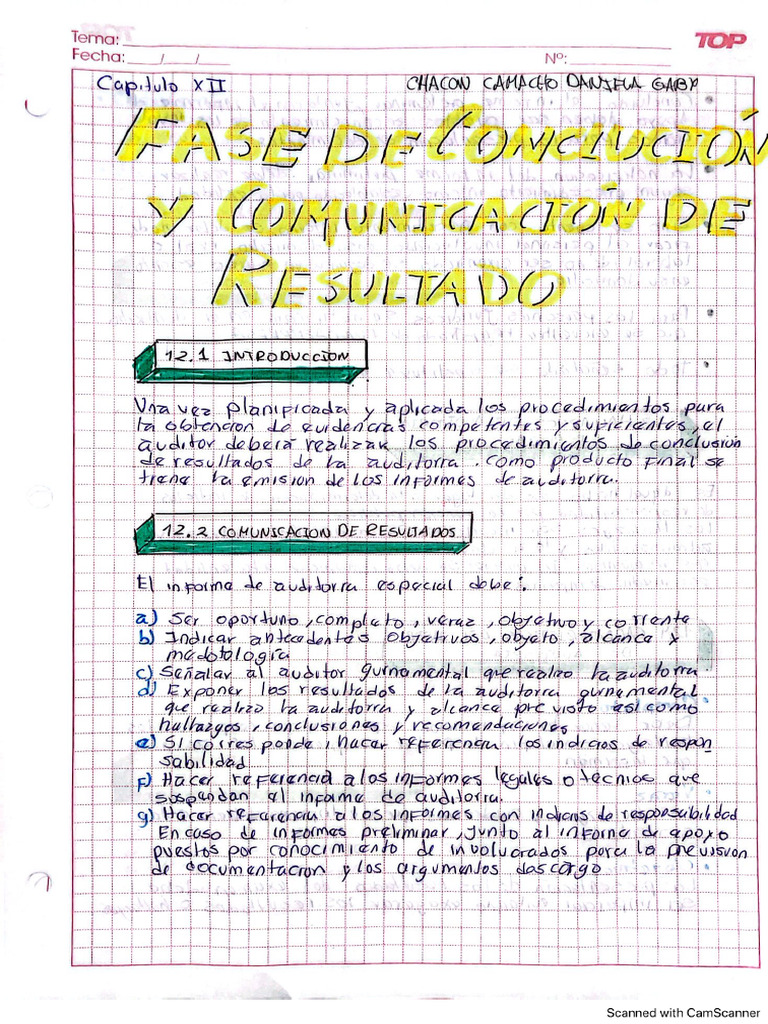 Tema:
TOP
Fecha: __/__/__
Nº:
Capitulo XII
CHACON CAMACHO DANIELA GABY
FASE DE CONCLUCIÓN
Y COMUNICACIÓN DE
RESULTADO
12.1 INTRODUCCION
Una vez planificada y aplicada los procedimientos para
la obtencion de evidencias competentes y suficientes, el
auditor deberá realizar los procedimientos de conclusion
de resultados de la auditorra. como producto final se
tiene la emision de los informes de auditorra.
12.2 COMUNICACION DE RESULTADOS
El informe de auditorra especial debe:
a) Ser oportuno, completo, veraz, objetivo y
b) Indicar antecedentes objetivos, objeto, alcance y
metodologia
c) Señalar al auditor gurnamental que realizo la auditorra
d) Exponer los resultados de la auditorra gurnamental
que realizo la auditorra y alcance previsto asi como
hallazgos, conclusiones y recomendaciones
e) Si corresponde, hacer referencia los indicios de respon
sabilidad
F) Hacer referencia a los informes legales o tecnios que
suspendan el informe de auditorra.
g) Hacer referencia a los informes con indicios de responsabilidad
En caso de informes preliminar, junto al informe de apoyo
puestos por conocimiento de involucrados para la prevision
de documentacion y los argumentos descargo
Scanned with CamScanner